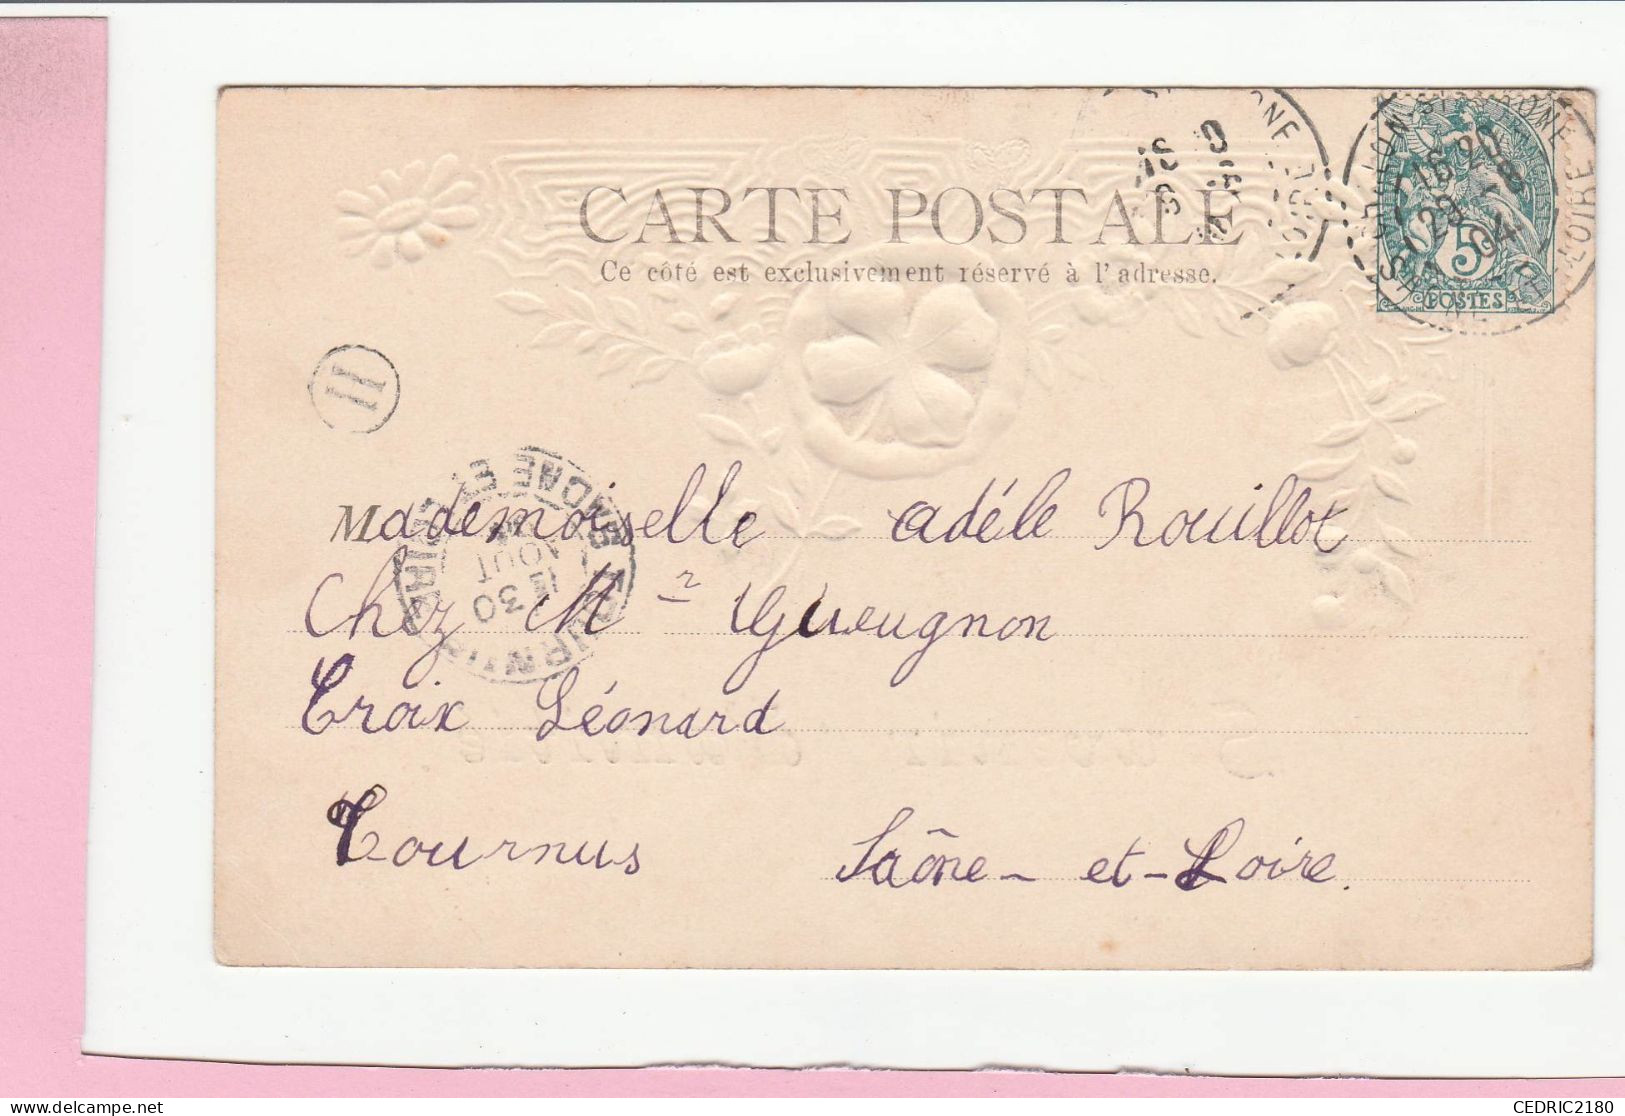 CARTE POSTALE
Ce côté est exclusivement réservé à l'adresse.
CHALON-S-SAONE
16 20
29 -8
04
SAONE ET LOIRE
5
POSTES
H
TOURNUS
SAONE ET LOIRE
30
AOUT
Mademoiselle adèle Rouillot
Chez Mr Gueugnon
Croix Léonard
Tournus Saône-et-Loire.
CEDRIC2180